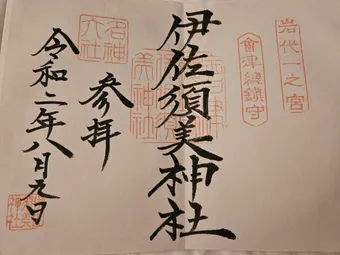 岩代一之宮
會津總鎮守
伊佐須美神社
参拝
名神大社
令和二年八月元日